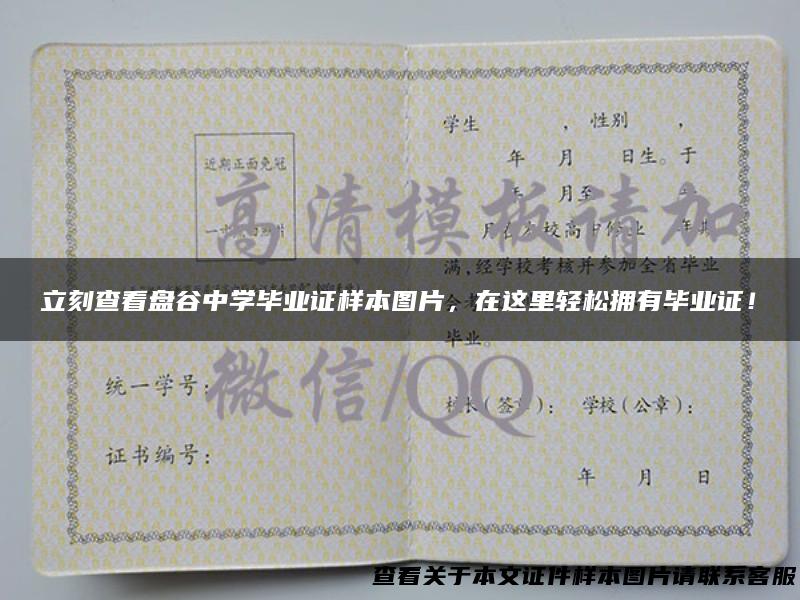 近期正面免冠
学生 ， 性别 ，
年 月 日生。于
月至
高清模板请加
满,经学校考核并参加全省毕业
立刻查看盘谷中学毕业证样本图片，在这里轻松拥有毕业证！
毕业。
微信/QQ
统一学号：
证书编号：
校长(签章)： 学校(公章)：
年 月 日
查看关于本文证件样本图片请联系客服